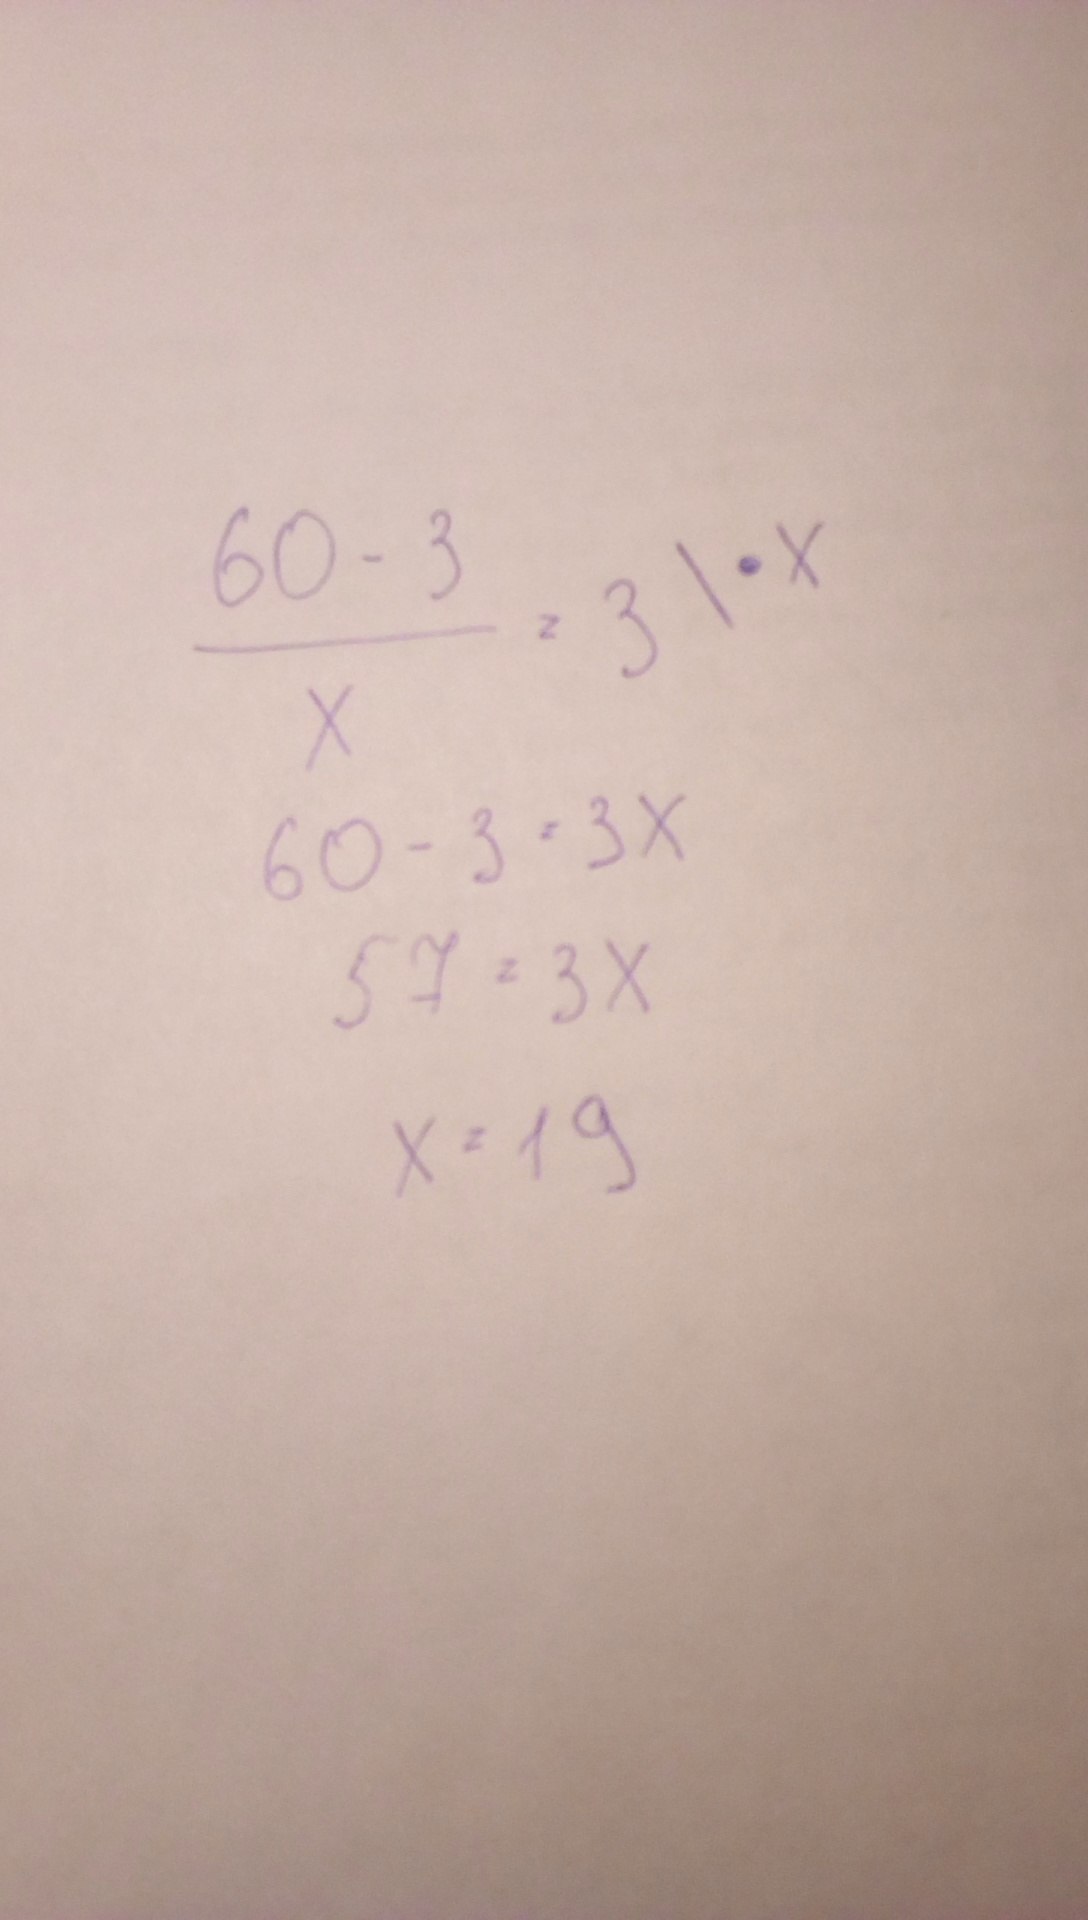 60 - 3 / x = 3 \ • x
60 - 3 = 3x
57 = 3x
x = 19